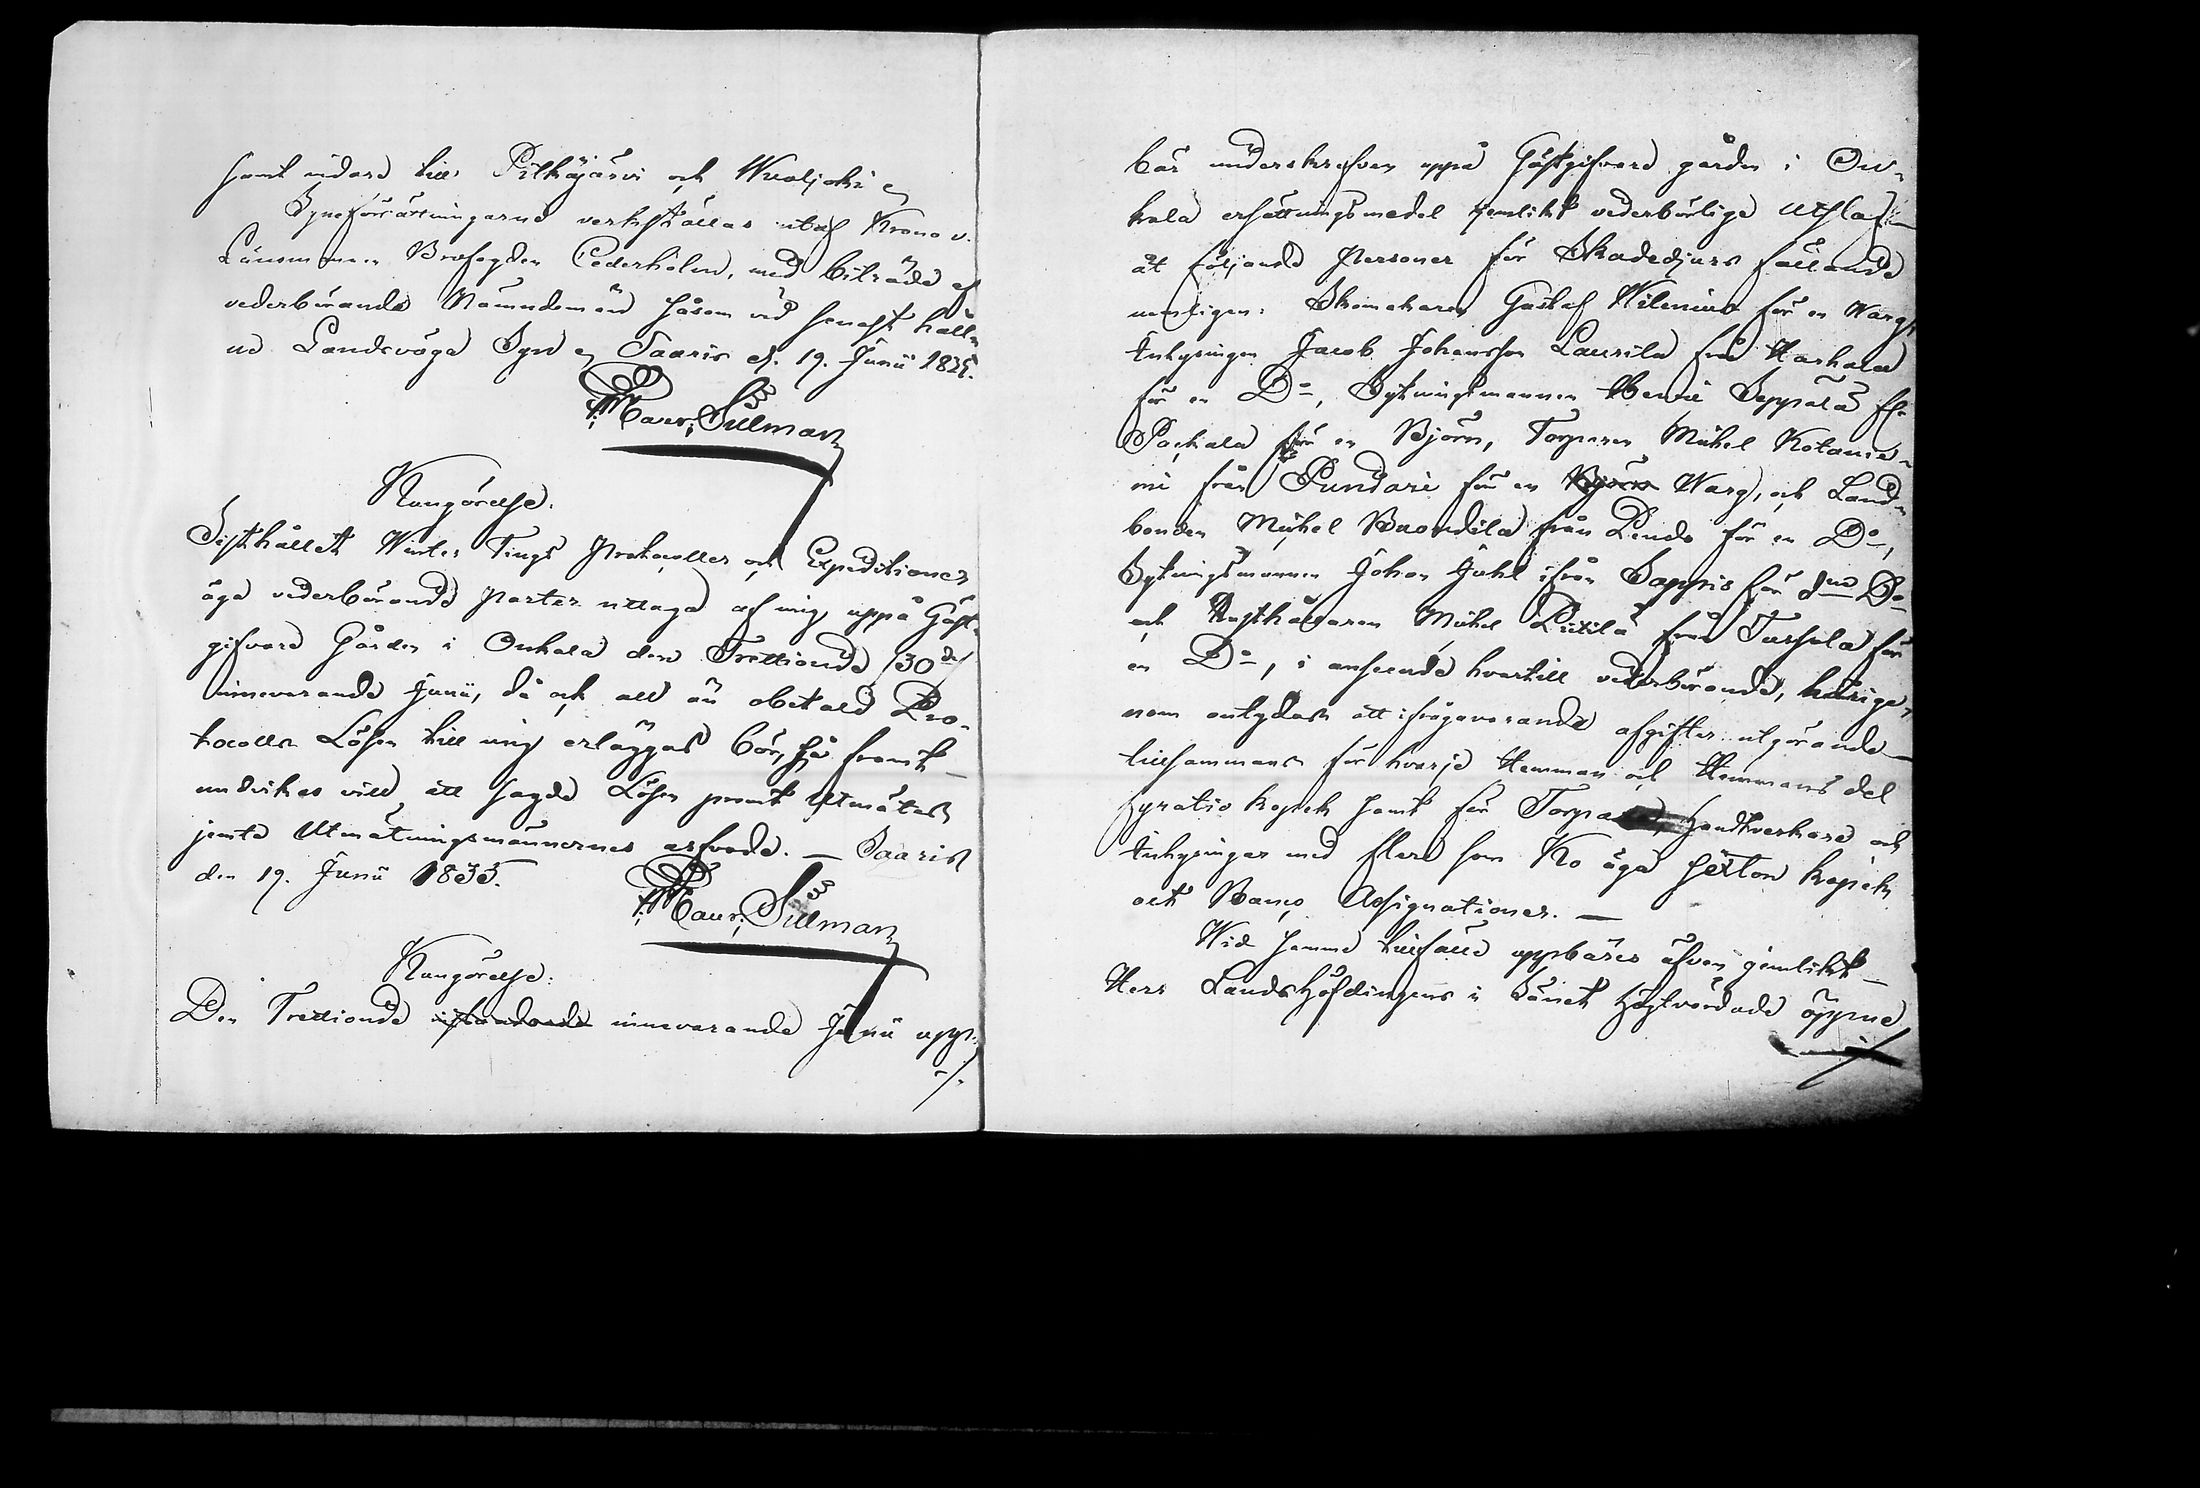 samt vidare till Pitkäjärvi och Wuoljoki
Syneförrättningarne verkställas utaf Krono
Länsmannen Brofogden Cederholm, med biträde af
vederbörande Nämndemän såsom vid senast håll-
na Landsvägs Syn Saaris d. 19. Junii 1835.
Maur: Sillman
Kungörelse:
Sisthållett Winter Tings Protocoller och Expeditioner
äga vederbörande parter uttaga af mig uppå Gäst-
gifvare Gården i Onkala den Trettionde /30de/
innevarande Junii, då och all än obetald Pro-
tocolls Lösen till mig erläggas bör, så framt
undvikas vill att sagde Lösen promt utmätas
jemte Utmätningsmännernes arfvode. — Saaris
den 19. Junii 1835.
Maur: Sillman
Kungörelse:
Den Trettionde innevarande Junii upp-
bär underskrefven uppå Gästgifvare gården i On-
kala ersättningsmedel jemlikt vederbörlige Utslag
åt följande personer för Skadedjurs fällande
nemligen: Skomakaren Gustaf Wilenius för en Warg,
Inhysingen Jacob Johansson Laurila från Karhala
för en Do, Sytningsmannen Henric Seppälä från
Packala för en Björn, Torparen Mickel Kotanie-
mi från Pundari för en Björn Warg, och Land-
bonden Mickel Buovdila från Pendo för en Do,
Sytningsmannen Johan Juhl ifrån Sappris för Do
och Rusthållaren Mickel Prittilä från Turhala för
en Do, i anseende hvartill vederbörande, härige-
nom antydas att ifrågavarande afgifter utgörande
tillsammans för hvarje Hemman och Hemmans del
fyratio kopek samt för Torpare, Handtverkare och
Inhysingar med flere som Ko äga sexton kopek
allt Banco Assignationer. —
Wid samma tillfälle uppbäres äfven jemlikt
Herr Landshöfdingens i Länet högtvördade öppne